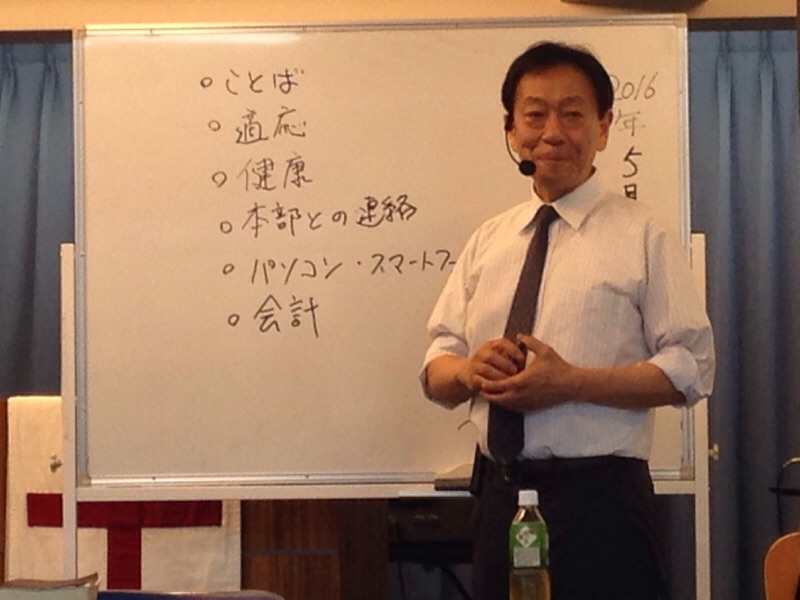 ○ことば
○適応
○健康
○本部との連絡
○パソコン・スマートフー
○会計
2016
年
5